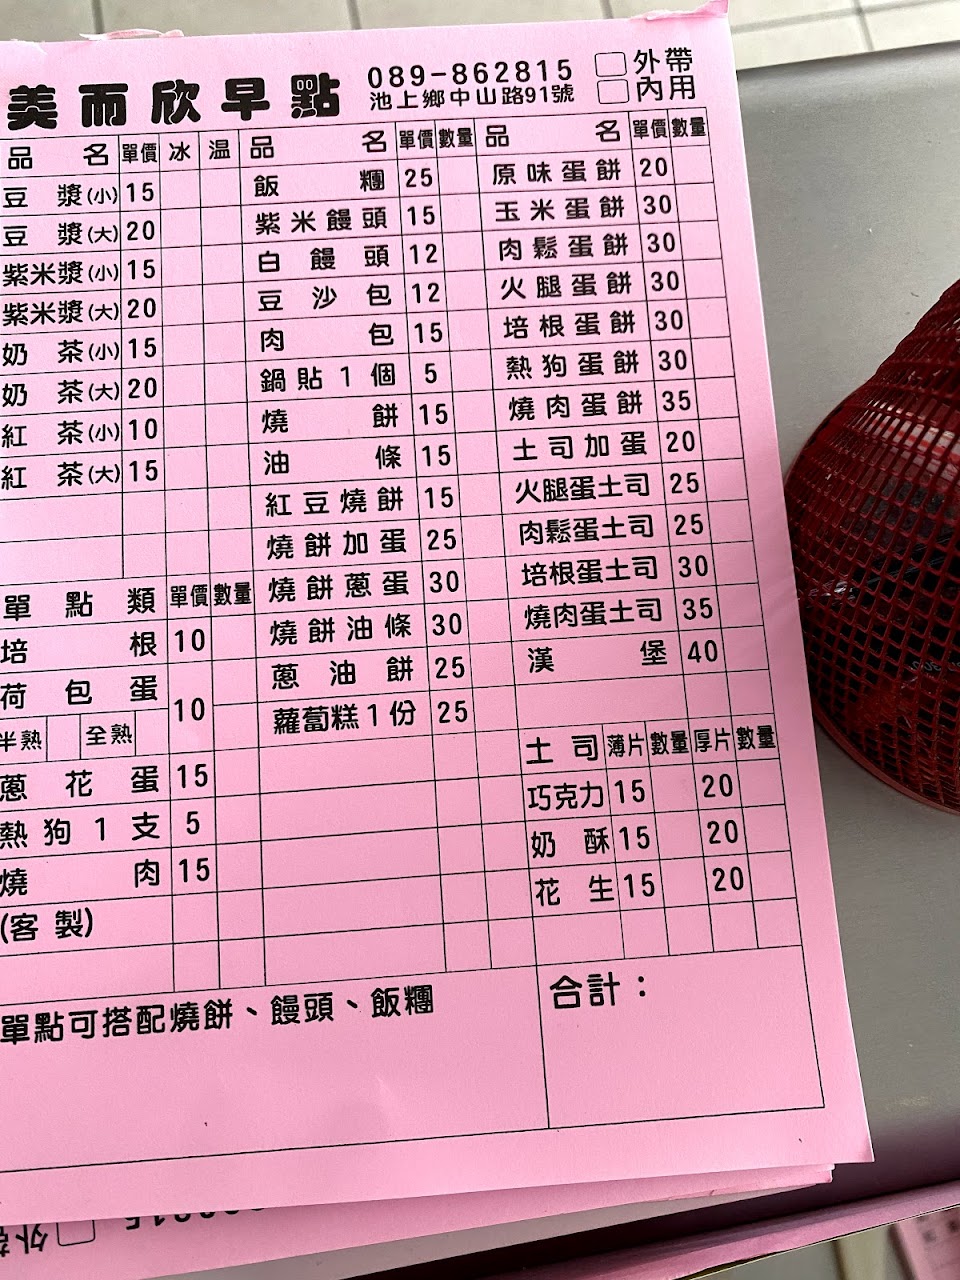 美而欣早點
089-862815
池上鄉中山路91號
外帶
內用
品名 單價 冰 温
豆漿(小) 15
豆漿(大) 20
紫米漿(小) 15
紫米漿(大) 20
奶茶(小) 15
奶茶(大) 20
紅茶(小) 10
紅茶(大) 15
單點類 單價 數量
培根 10
荷包蛋 10
半熟 全熟
蔥花蛋 15
熱狗1支 5
燒肉 15
(客製)
品名 單價 數量
飯糰 25
紫米饅頭 15
白饅頭 12
豆沙包 12
肉包 15
鍋貼1個 5
燒餅 15
油條 15
紅豆燒餅 15
燒餅加蛋 25
燒餅蔥蛋 30
燒餅油條 30
蔥油餅 25
蘿蔔糕1份 25
品名 單價 數量
原味蛋餅 20
玉米蛋餅 30
肉鬆蛋餅 30
火腿蛋餅 30
培根蛋餅 30
熱狗蛋餅 30
燒肉蛋餅 35
土司加蛋 20
火腿蛋土司 25
肉鬆蛋土司 25
培根蛋土司 30
燒肉蛋土司 35
漢堡 40
土司 薄片 數量 厚片 數量
巧克力 15 20
奶酥 15 20
花生 15 20
單點可搭配燒餅、饅頭、飯糰
合計：